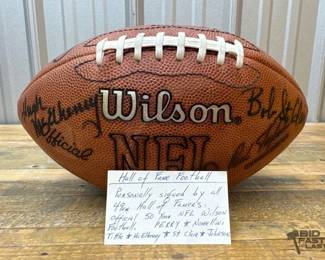 Hugh
McElhenny
Wilson
Official
NFL
Bob St. Clair
Hall of Fame Football
Personally signed by all
49er Hall of Famer's.
Official 50 Year NFL Wilson
Football. PERRY ★ Nomellini
Tittle ★ McElhenny ★ St Clair ★ Johnson
BID
FAST
LAST